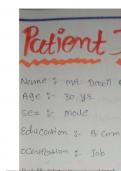 Patient
Name :- MR.
Age :- 30, yrs
Sex :- male
Education :- B.Com
Occupation :- Job